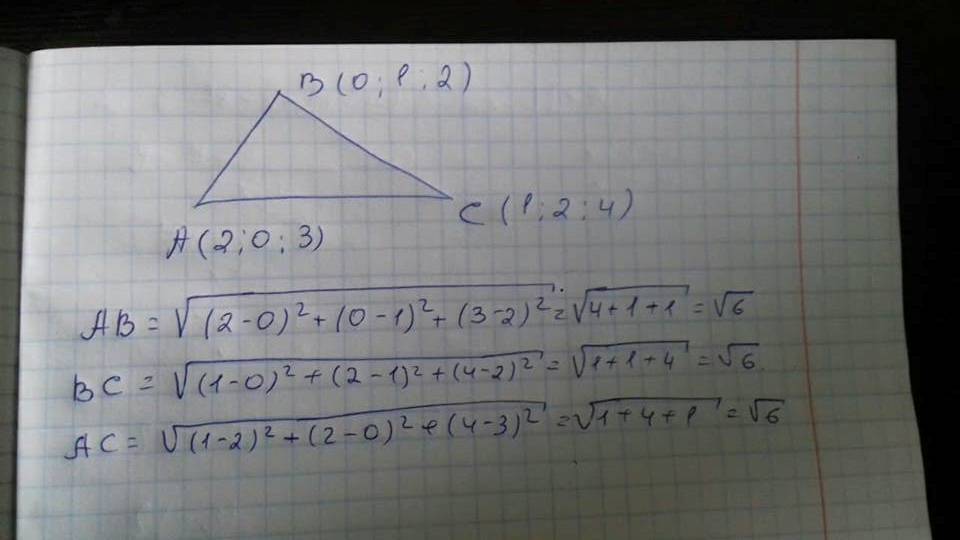 B (0; 1; 2)
C (1; 2; 4)
A (2; 0; 3)
AB = √(2-0)² + (0-1)² + (3-2)² = √4+1+1 = √6
BC = √(1-0)² + (2-1)² + (4-2)² = √1+1+4 = √6
AC = √(1-2)² + (2-0)² + (4-3)² = √1+4+1 = √6